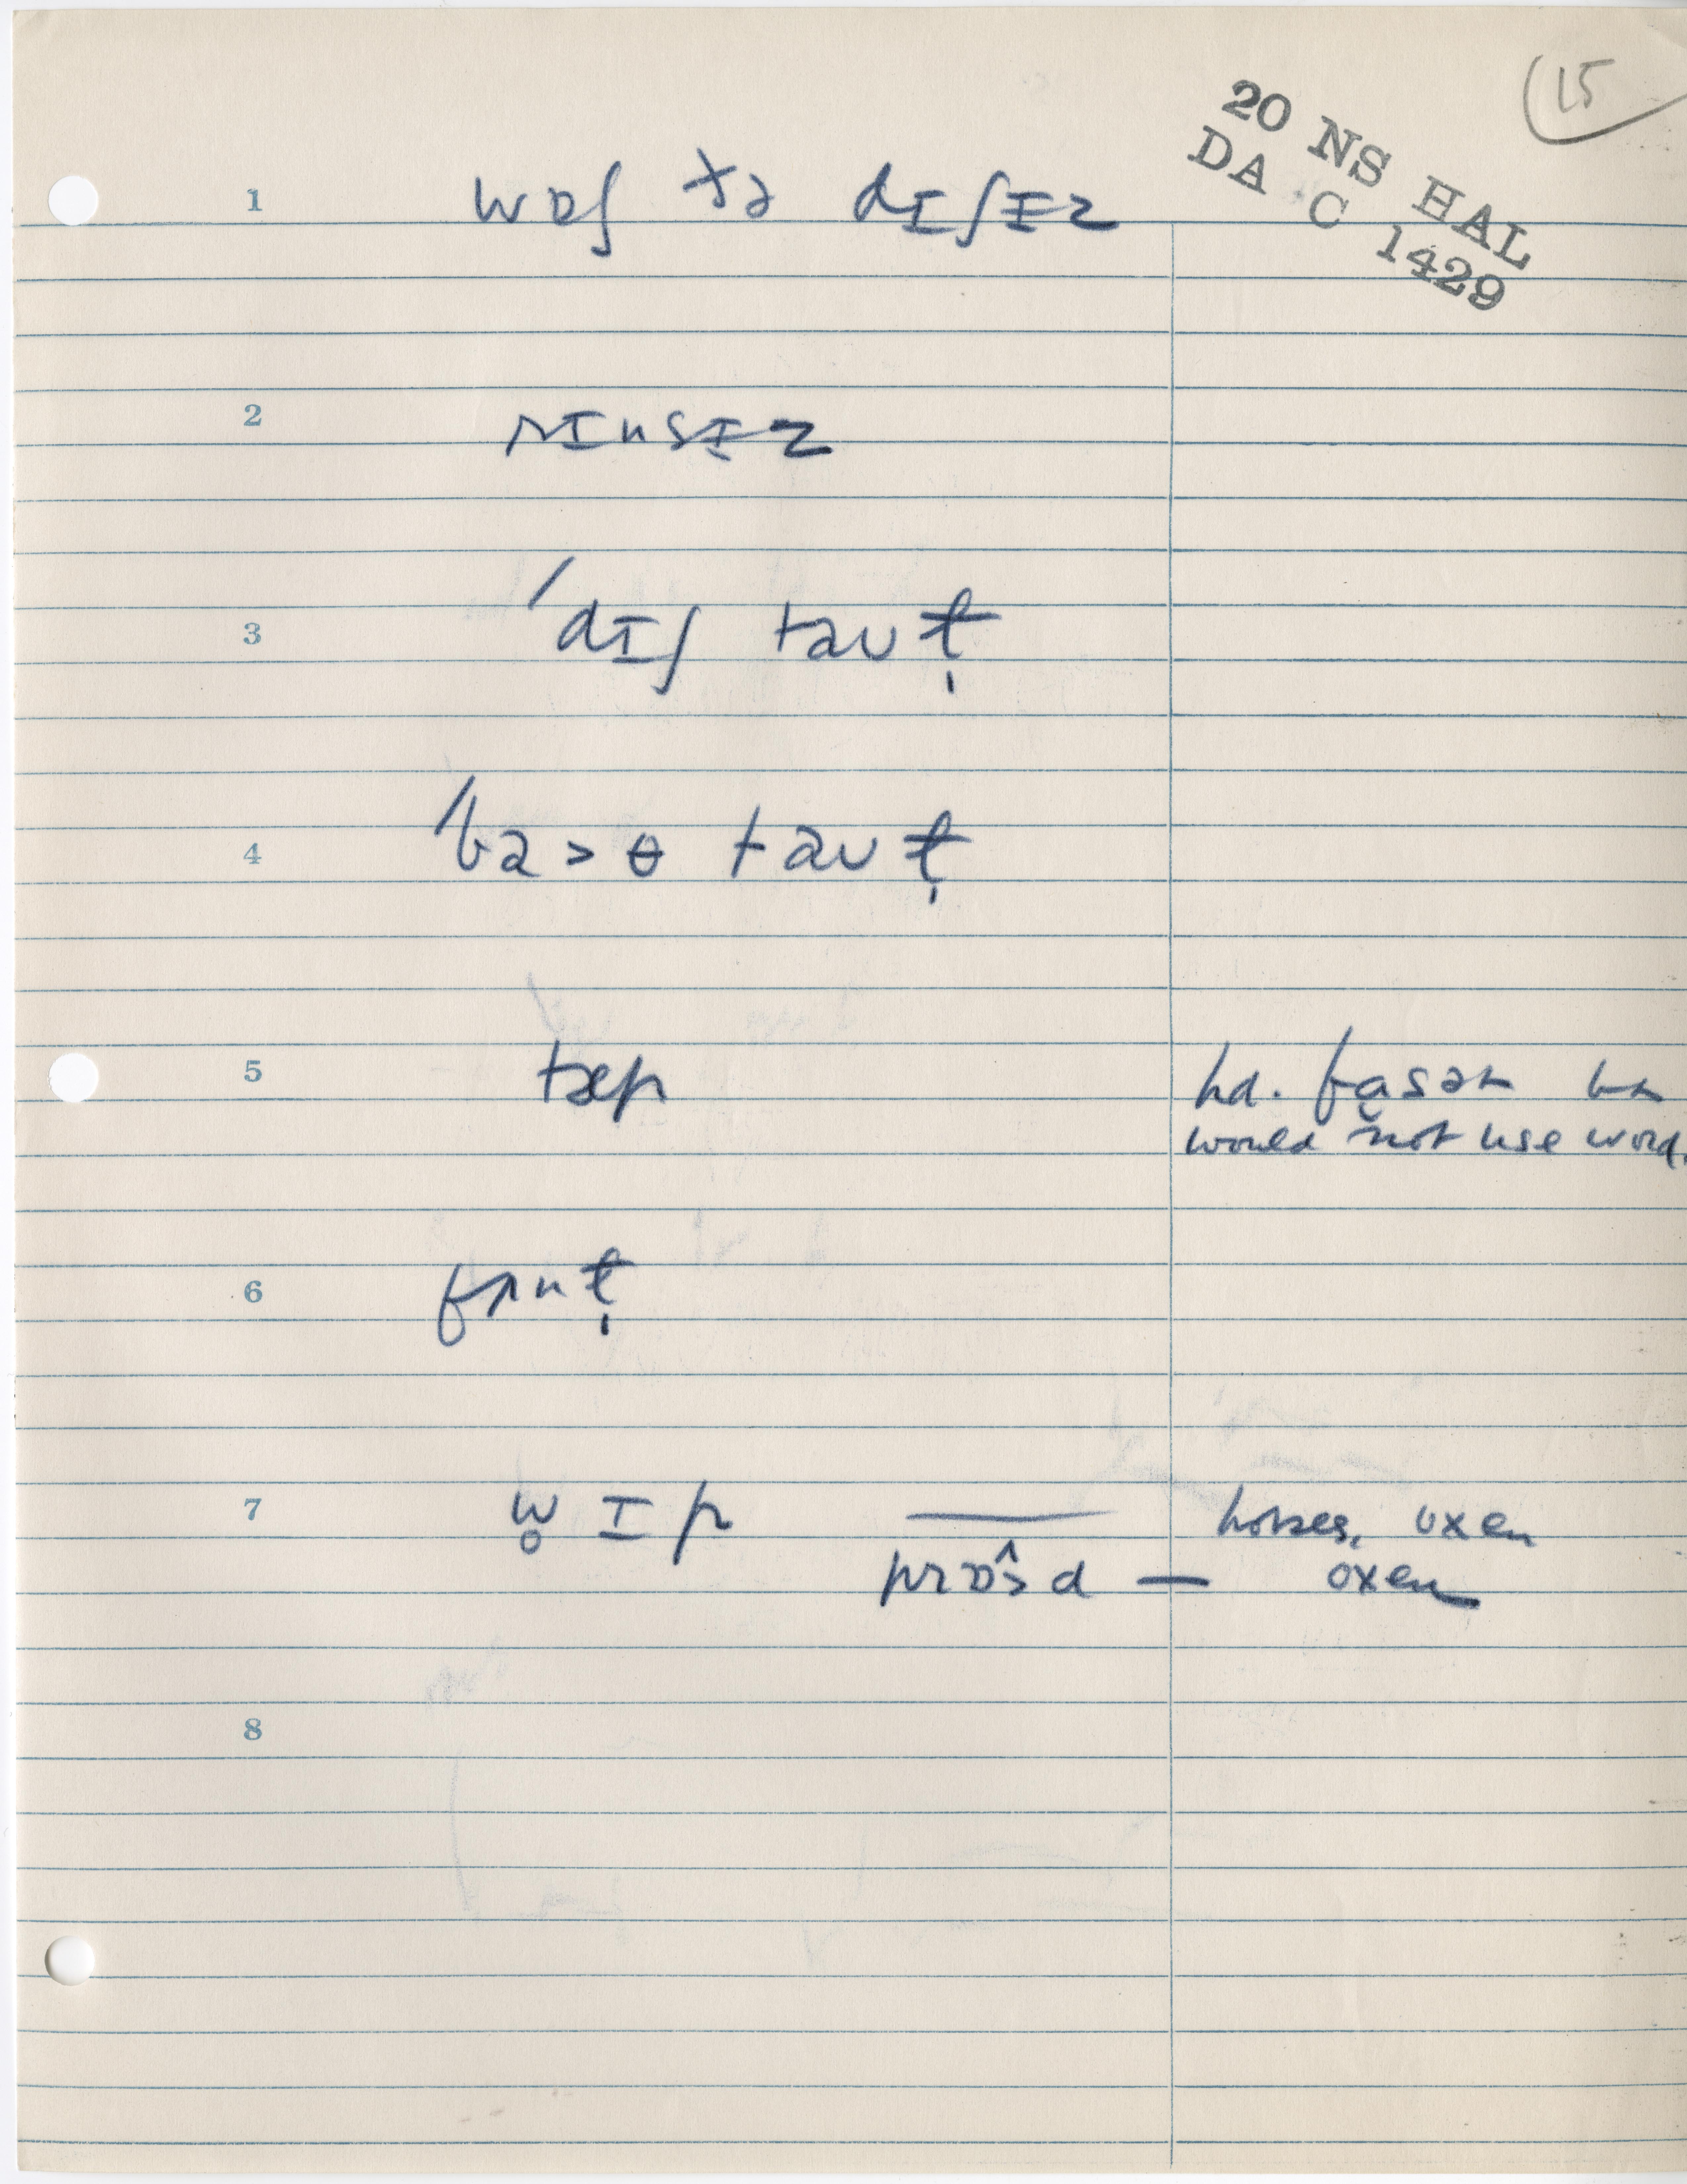 15
20 NS HAL
DA C 1429
1 wɒʃ tə dɪʃɪz
2 rɪnsɪz
3 ˈdɪʃ taʊt̬
4 ˈbaθ taʊt̬
5 tæp hd. fasər
would not use word.
6 t̬
7 w̥ ɪ p — horses, oxen
prɒ̂d — oxen
8